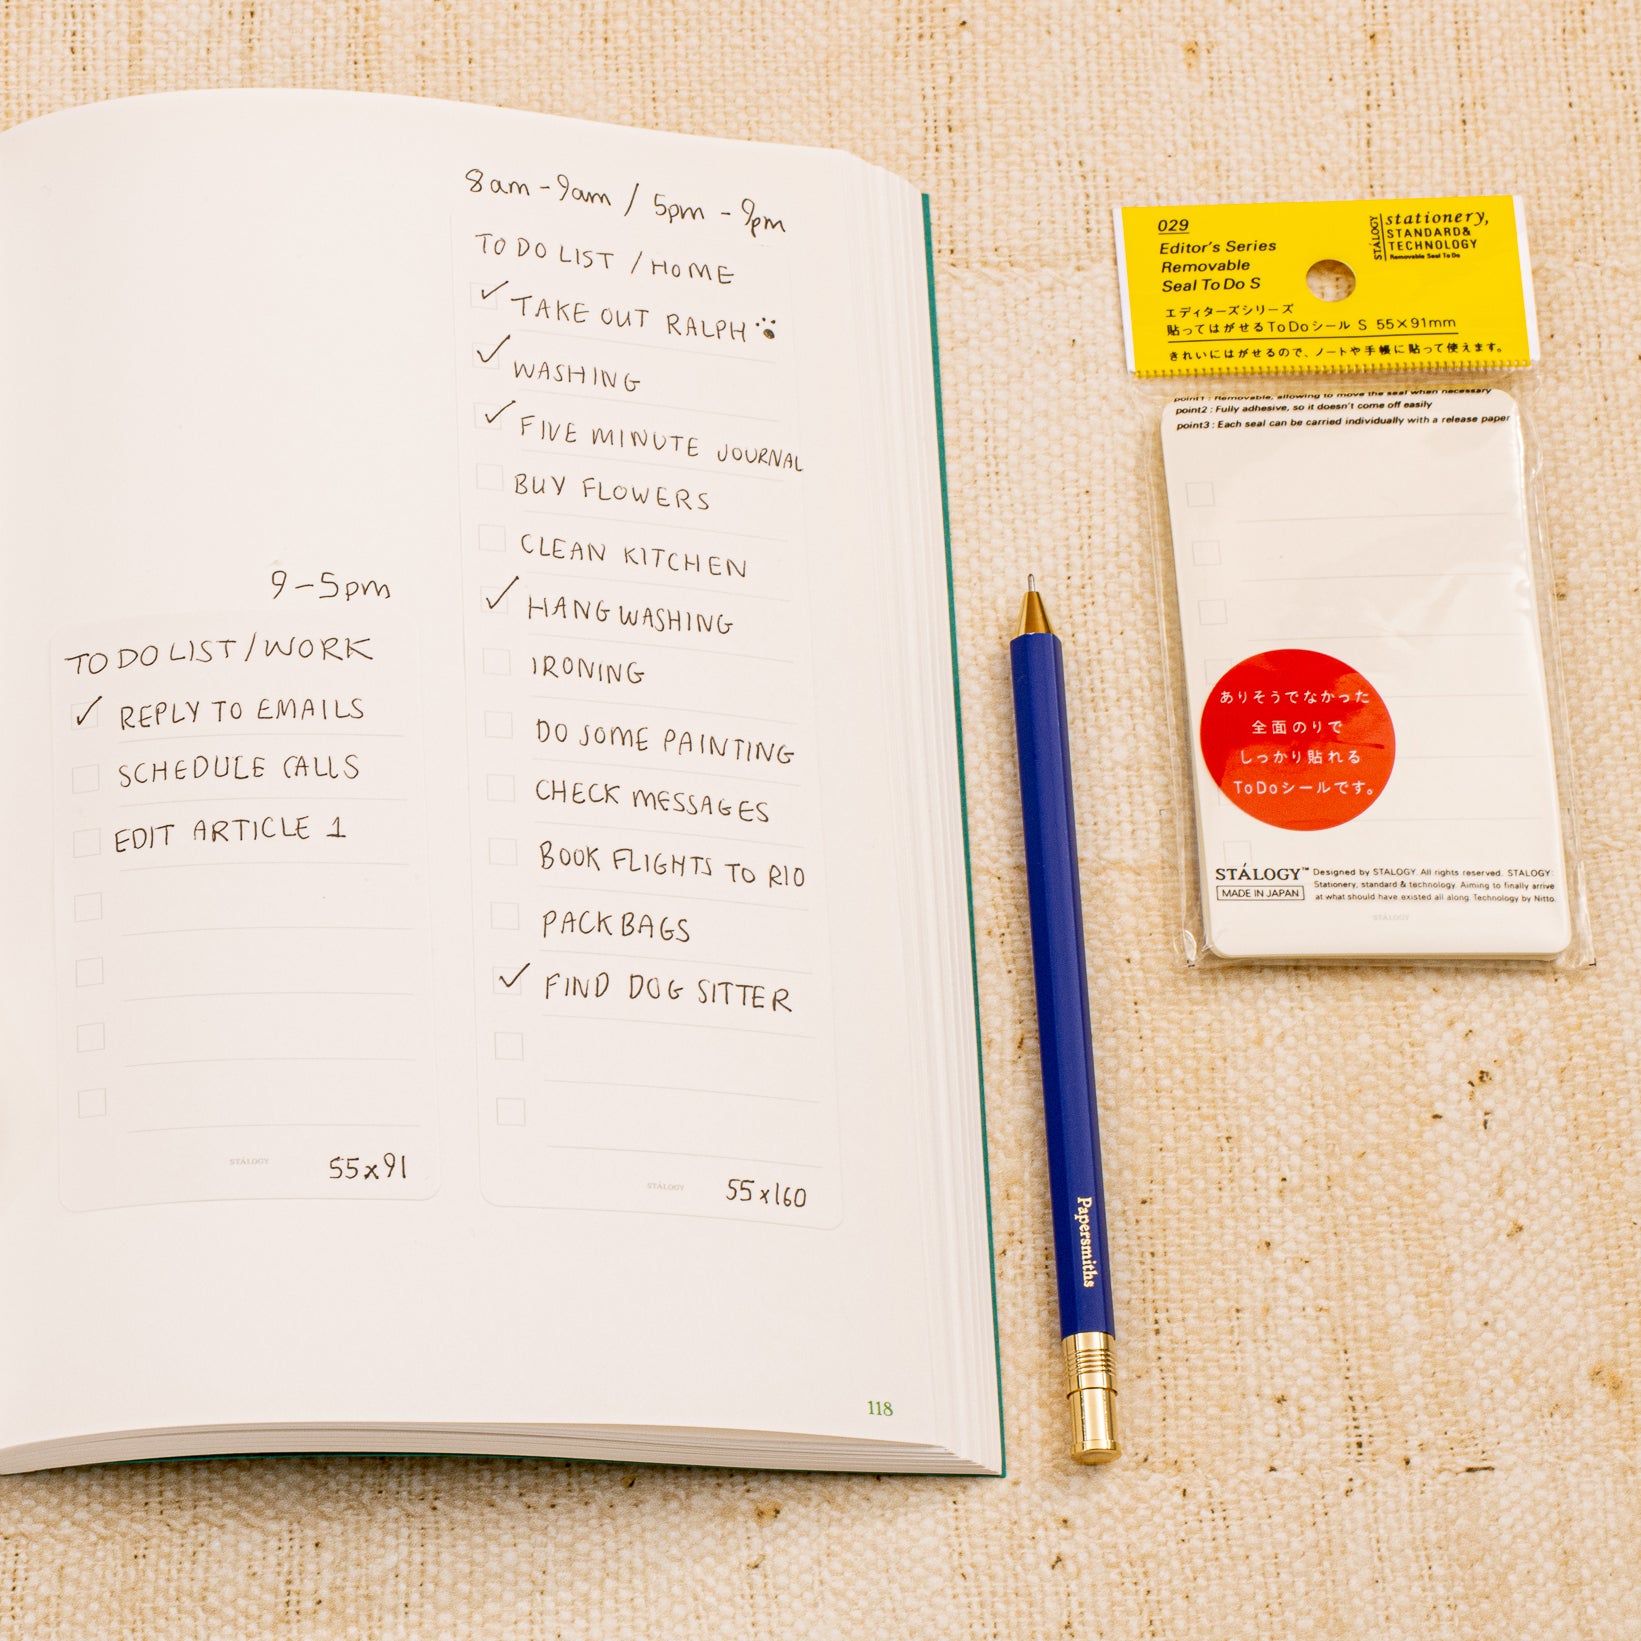 9-5pm
TO DO LIST / WORK
REPLY TO EMAILS
SCHEDULE CALLS
EDIT ARTICLE 1
STÁLOGY
55x91
8am-9am / 5pm - 9pm
TO DO LIST / HOME
TAKE OUT RALPH
WASHING
FIVE MINUTE JOURNAL
BUY FLOWERS
CLEAN KITCHEN
HANG WASHING
IRONING
DO SOME PAINTING
CHECK MESSAGES
BOOK FLIGHTS TO RIO
PACK BAGS
FIND DOG SITTER
STÁLOGY
55x160
118
Papersmiths
029
Editor's Series
Removable
Seal To Do S
STÁLOGY
stationery,
STANDARD&
TECHNOLOGY
Removable Seal To Do
エディターズシリーズ
貼ってはがせるToDoシール S 55×91mm
きれいにはがせるので、ノートや手帳に貼って使えます。
point1 : Removable, allowing to move the seal when necessary
point2 : Fully adhesive, so it doesn't come off easily
point3 : Each seal can be carried individually with a release paper
ありそうでなかった
全面のりで
しっかり貼れる
ToDoシールです。
STÁLOGY™
MADE IN JAPAN
Designed by STALOGY. All rights reserved. STALOGY:
Stationery, standard & technology. Aiming to finally arrive
at what should have existed all along. Technology by Nitto.
STÁLOGY